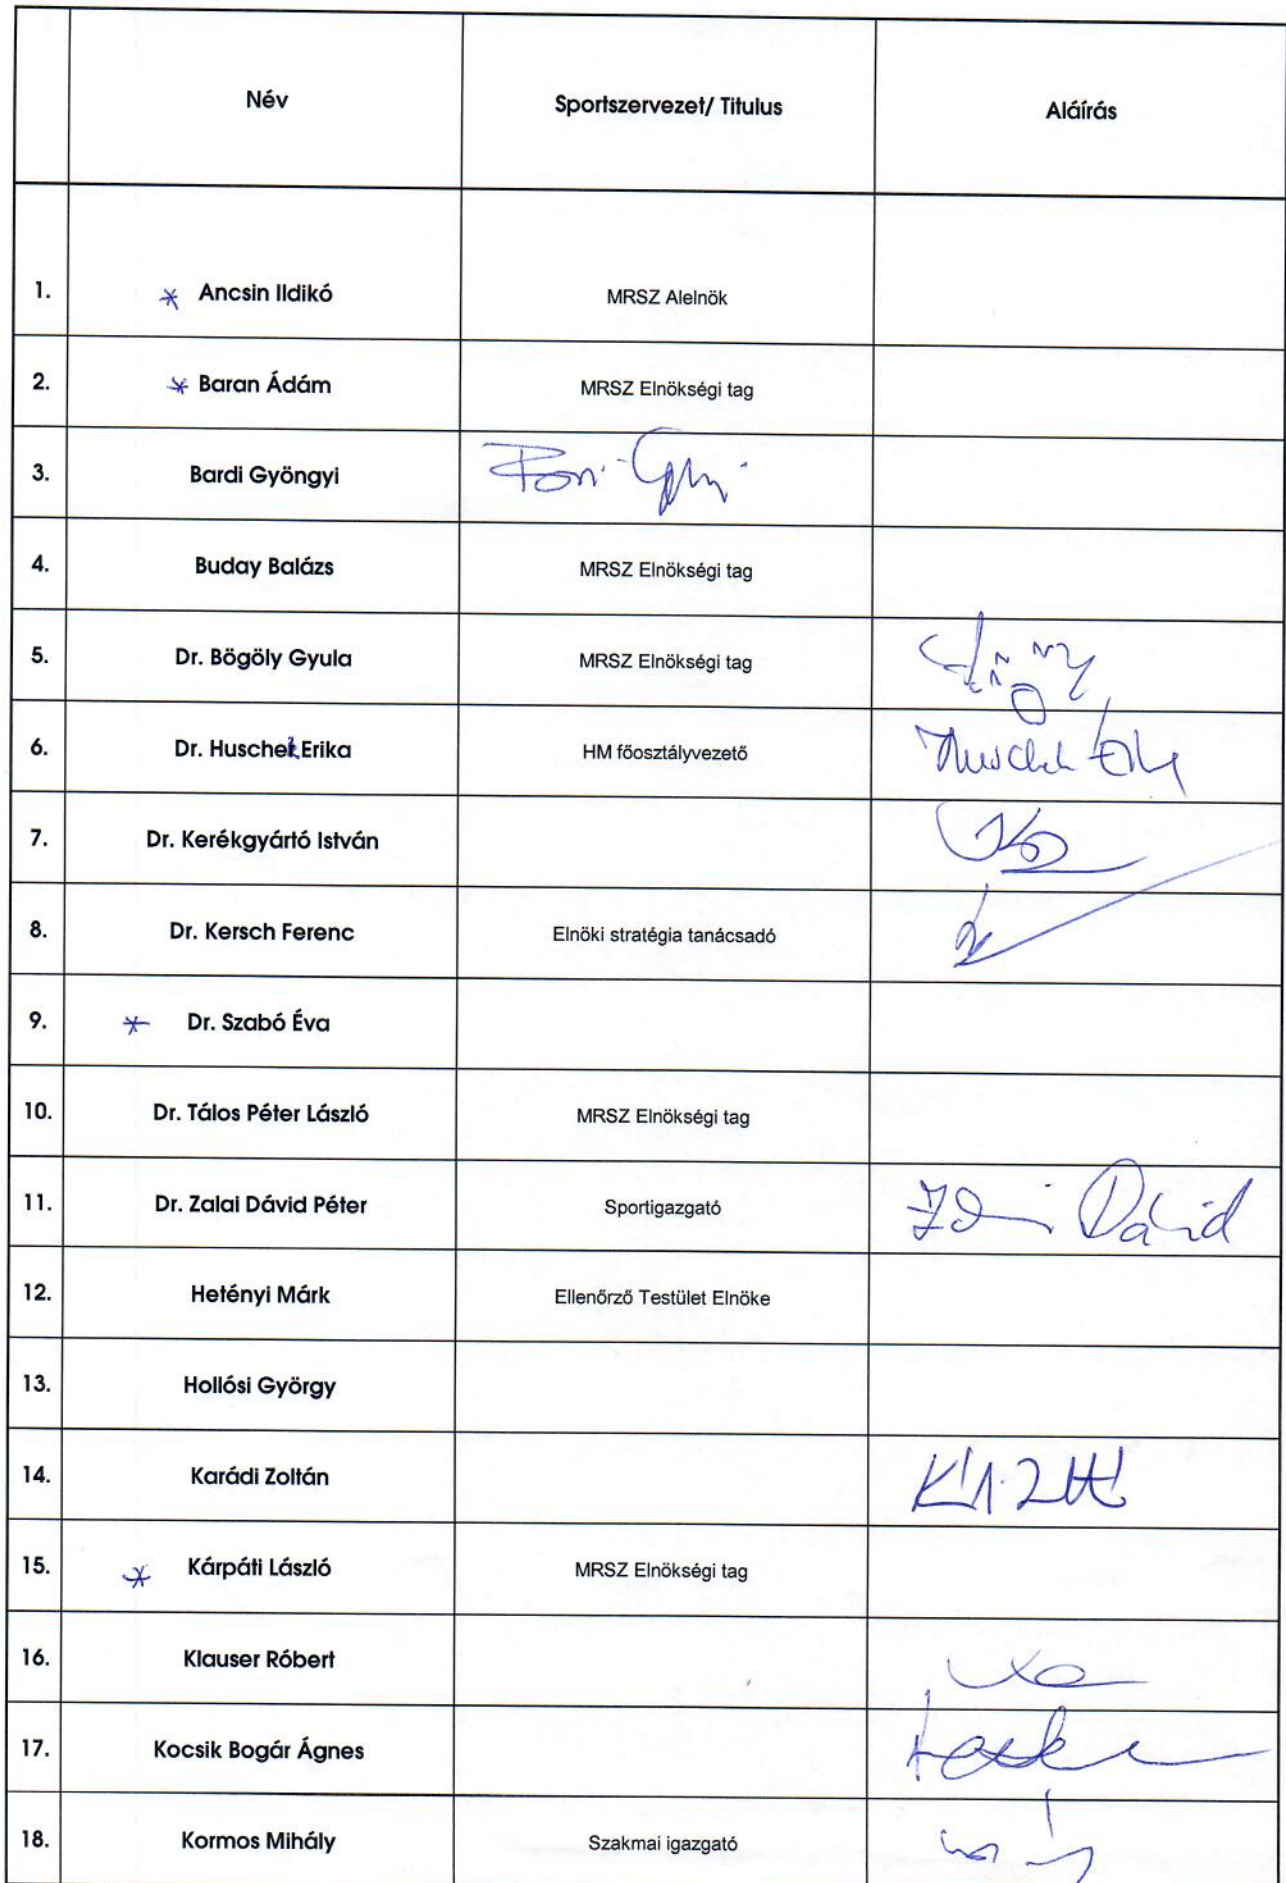 Név Sportszervezet/ Titulus Aláírás
1. * Ancsin Ildikó MRSZ Alelnök
2. * Baran Ádám MRSZ Elnökségi tag
3. Bardi Gyöngyi
4. Buday Balázs MRSZ Elnökségi tag
5. Dr. Bögöly Gyula MRSZ Elnökségi tag
6. Dr. Huschek Erika HM főosztályvezető Huschek Erika
7. Dr. Kerékgyártó István
8. Dr. Kersch Ferenc Elnöki stratégia tanácsadó
9. * Dr. Szabó Éva
10. Dr. Tálos Péter László MRSZ Elnökségi tag
11. Dr. Zalai Dávid Péter Sportigazgató Dávid
12. Hetényi Márk Ellenőrző Testület Elnöke
13. Hollósi György
14. Karádi Zoltán
15. * Kárpáti László MRSZ Elnökségi tag
16. Klauser Róbert
17. Kocsik Bogár Ágnes
18. Kormos Mihály Szakmai igazgató